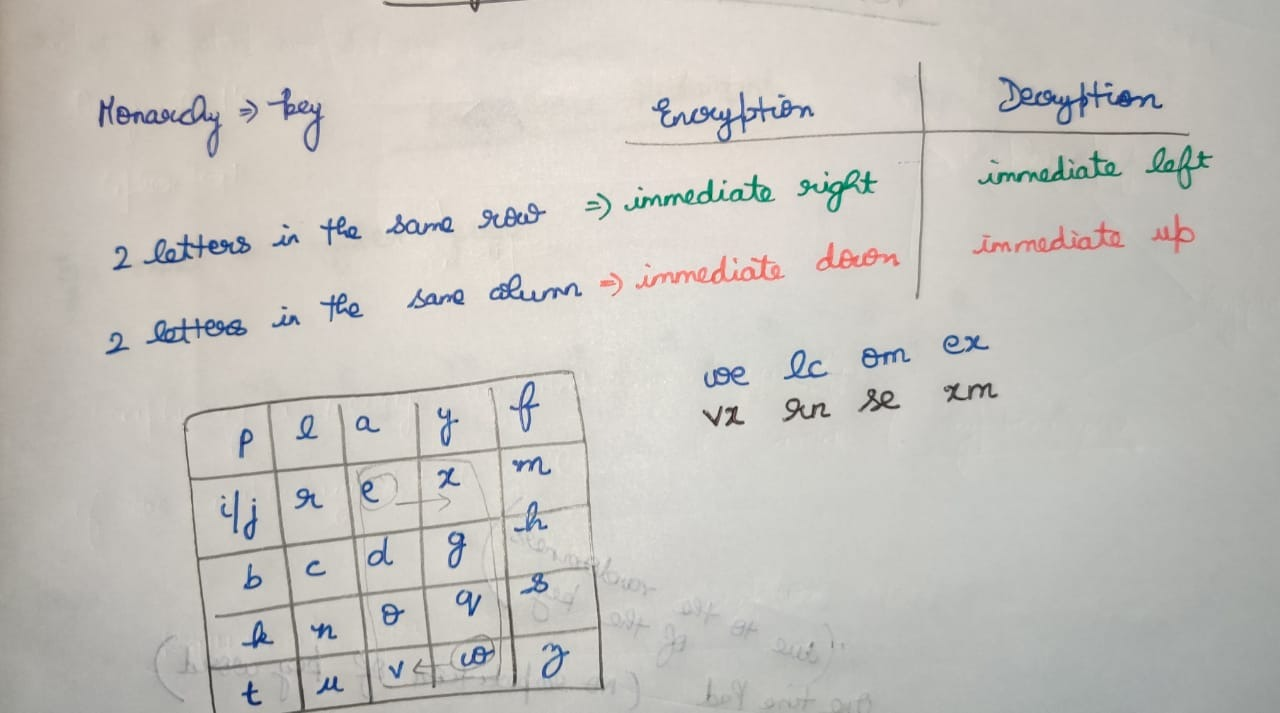 Monarchy ⇒ key
Encryption Decryption
2 letters in the same row ⇒ immediate right immediate left
2 letters in the same column ⇒ immediate down immediate up
we lc om ex
vx rn se xm
p l a y f
i/j r e x m
b c d g h
k n o q s
t u v w z